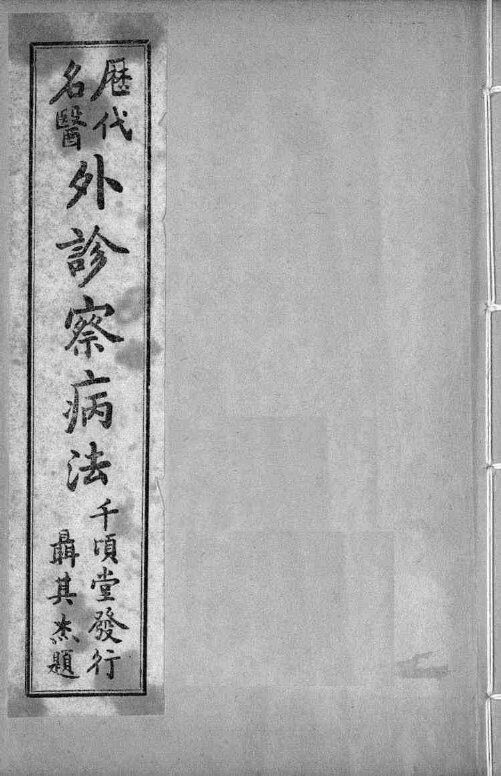 歷代
名醫
外診察病法
千頃堂發行
聶其杰題